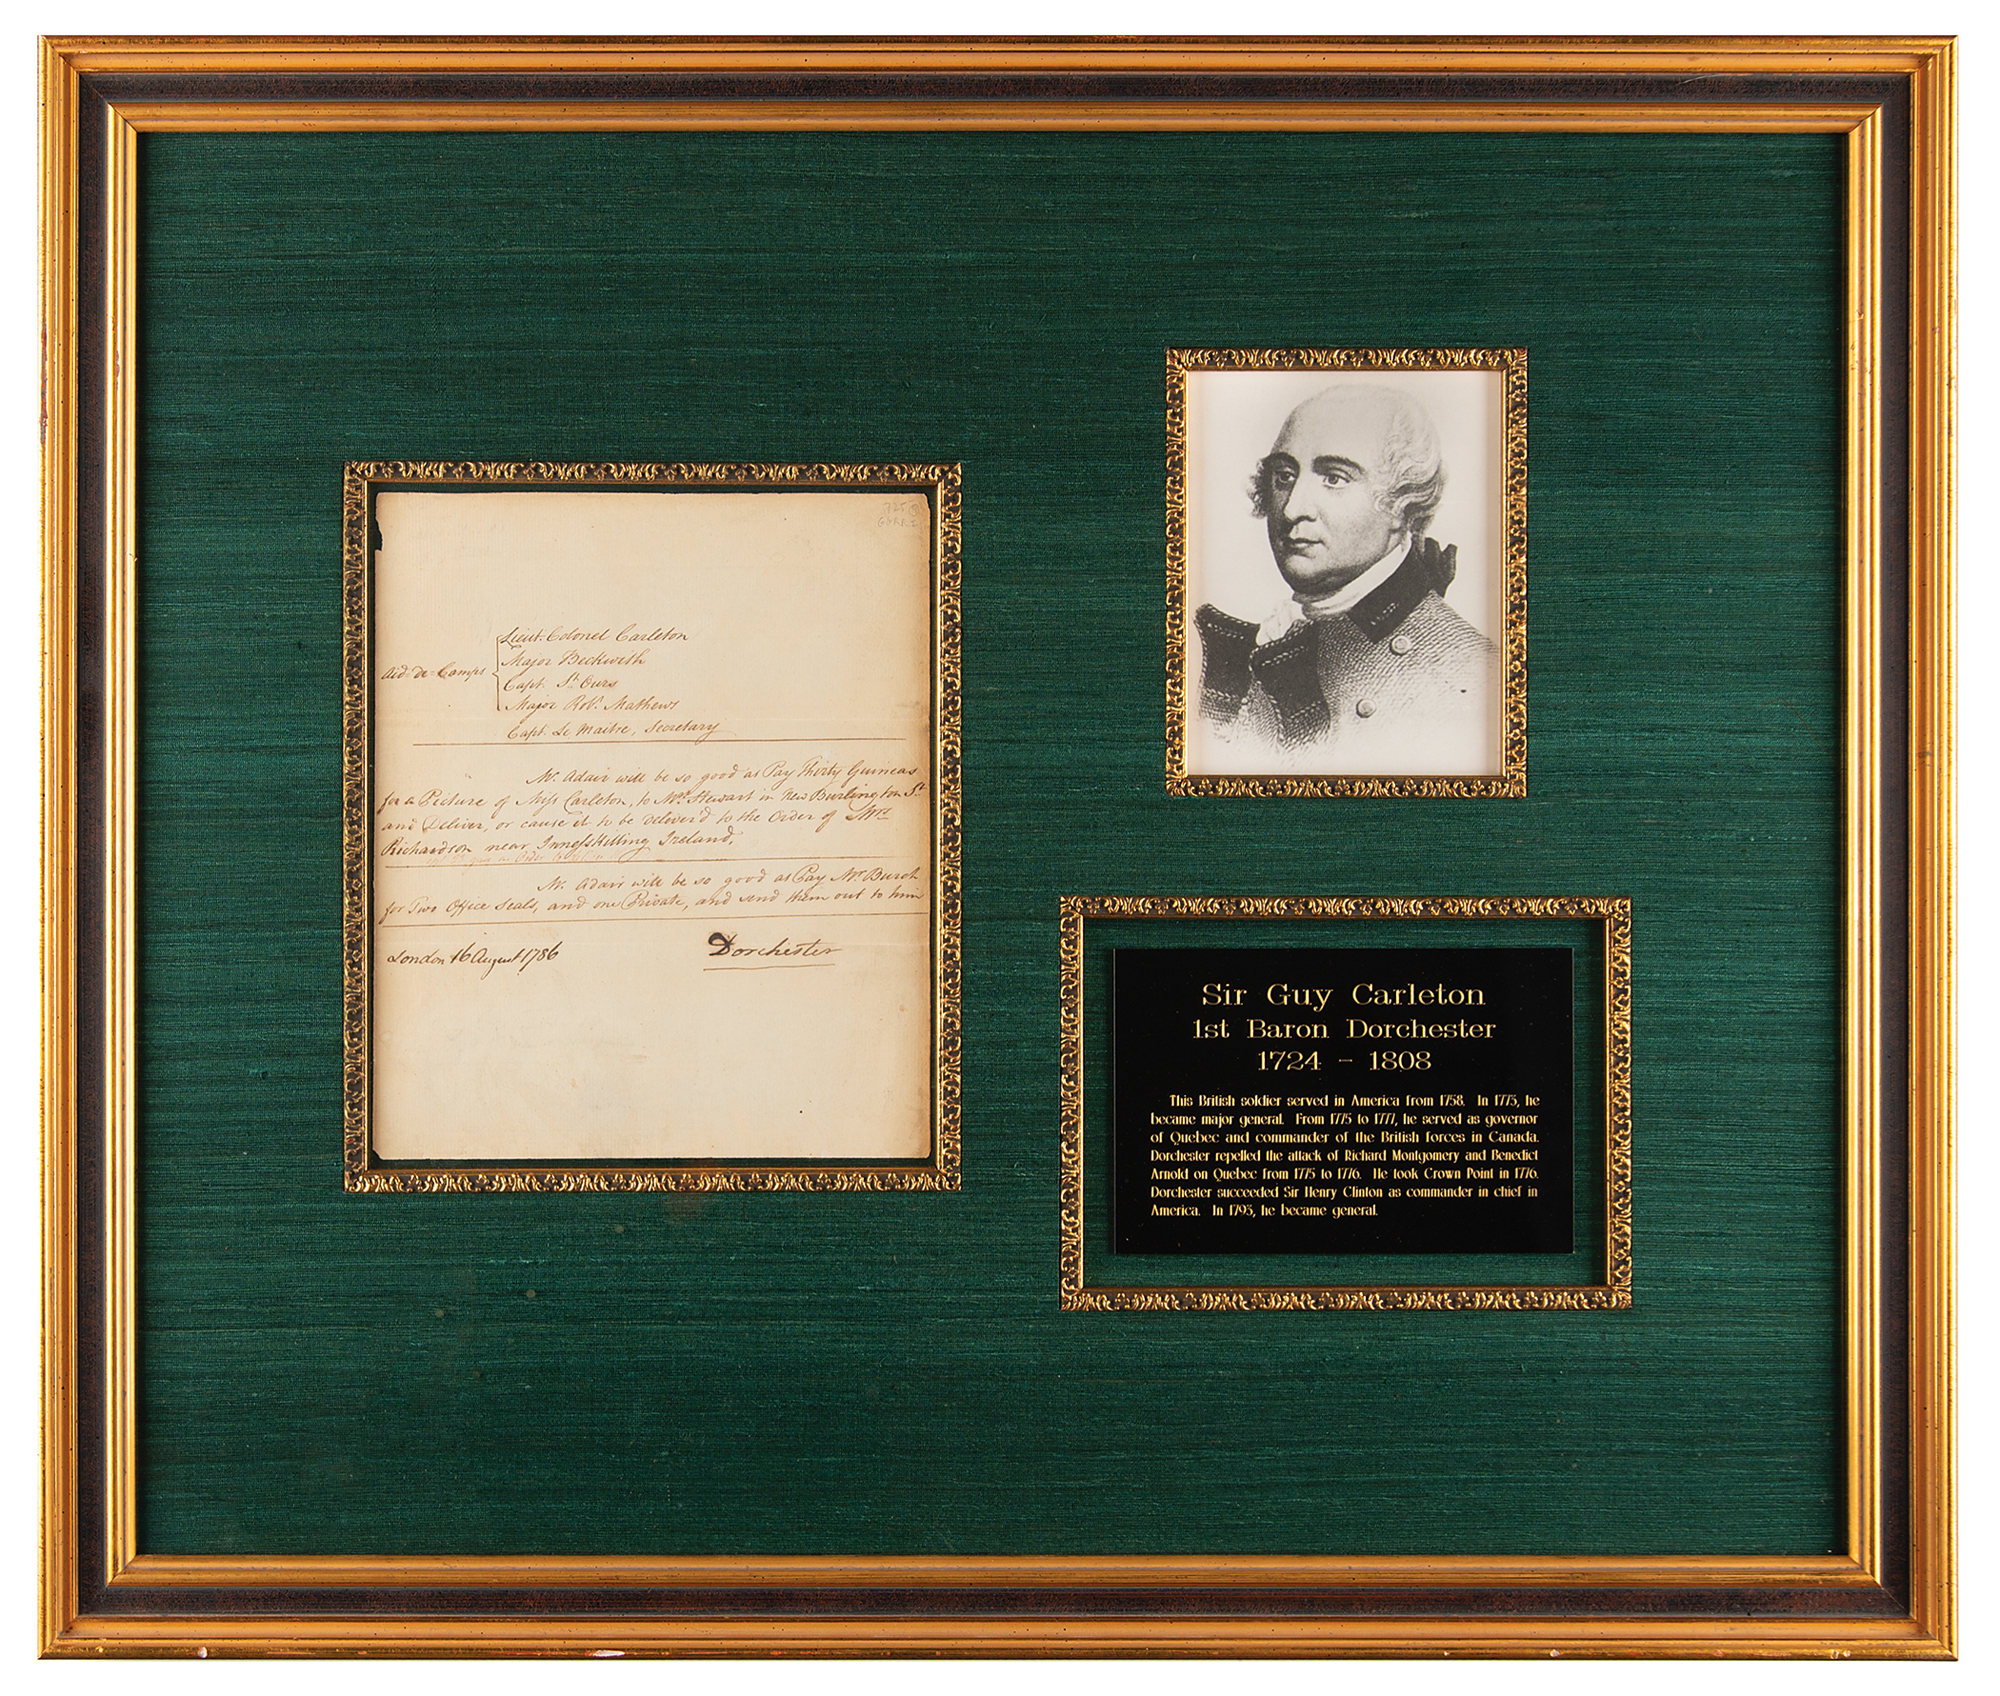 725
Lieut. Colonel Carleton
Major Beckwith
Aid-De-Camps
Capt. St. Ours
Major Robt. Mathews
Capt. Le Maitre, Secretary
Mr. Adair will be so good as Pay Thirty Guineas
for a Picture of Miss Carleton, to Mr. Stewart in New Burlington St.
and Deliver, or cause it to be deliver'd to the Order of Mrs.
Richardson near Inneskilling Ireland,
Mr. Adair will be so good as Pay Mr. Burch
for Two Office Seals, and one Private, and send them out to him
London 16 August 1786 Dorchester
Sir Guy Carleton
1st Baron Dorchester
1724 - 1808
This British soldier served in America from 1758. In 1775, he
became major general. From 1775 to 1777, he served as governor
of Quebec and commander of the British forces in Canada.
Dorchester repelled the attack of Richard Montgomery and Benedict
Arnold on Quebec from 1775 to 1776. He took Crown Point in 1776.
Dorchester succeeded Sir Henry Clinton as commander in chief in
America. In 1793, he became general.